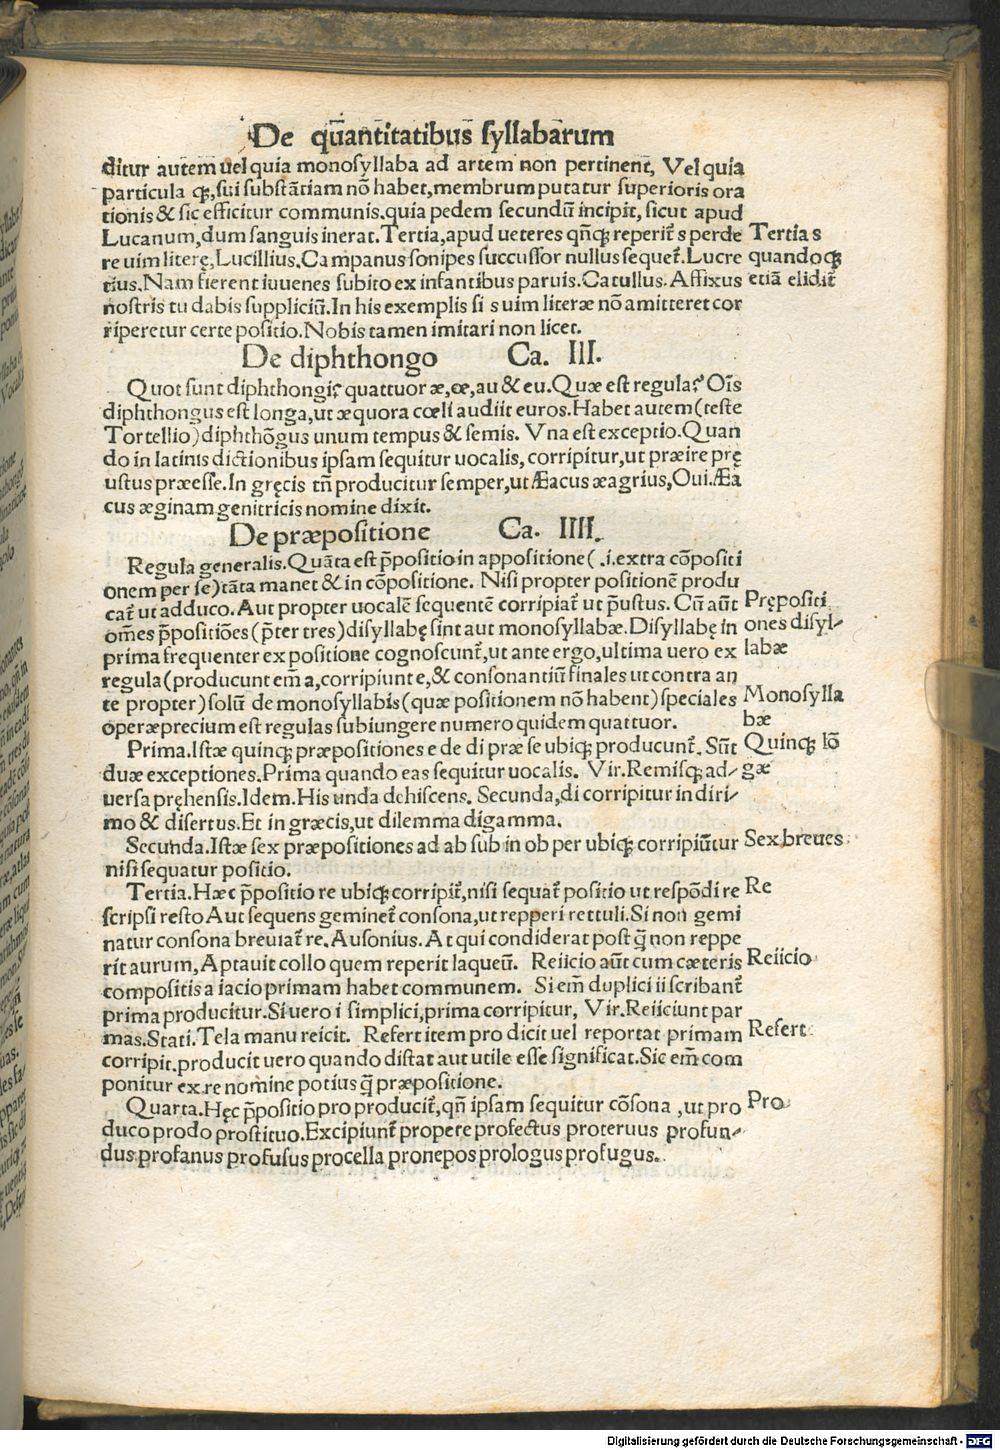 De qu̅antitatibus syllabarum
ditur autem uel quia monosyllaba ad artem non pertinent, Vel quia
particula qꝫ, sui substātiam nō habet, membrum putatur superioris ora
tionis & sic efficitur communis. quia pedem secundū incipit, sicut apud
Lucanum, dum sanguis inerat. Tertia, apud ueteres qn̄qꝫ reperit᷑ s perde
re uim literę, Lucillius. Campanus sonipes succussor nullus sequet᷑. Lucre
tius. Nam fierent iuuenes subito ex infantibus paruis. Catullus. Affixus
nostris tu dabis suppliciū. In his exemplis si s uim literæ nō amitteret cor
riperetur certe positio. Nobis tamen imitari non licet.
Tertia s
quandoqꝫ
etiā elidit᷑
De diphthongo Ca. III.
Quot sunt diphthongi? quattuor æ, œ, au & eu. Quæ est regula? Oīs
diphthongus est longa, ut æquora cœli audiit euros. Habet autem (teste
Tortellio) diphthōgus unum tempus & semis. Vna est exceptio. Quan
do in latinis dictionibus ipsam sequitur uocalis, corripitur, ut præire prę
ustus præesse. In gręcis tn̄ producitur semper, ut Æacus æagrius, Oui. Æa
cus æginam genitricis nomine dixit.
De præpositione Ca. IIII.
Regula generalis. Quāta est p̄positio in appositione (.i. extra cōpositi
onem per se) tāta manet & in cōpositione. Nisi propter positionē produ
cat᷑ ut adduco. Aut propter uocalē sequentē corripiat᷑ ut p̄ustus. Cū aūt
om̄es p̄positiōes (p̄ter tres) disyllabę sint aut monosyllabæ. Disyllabę in
prima frequenter ex positione cognoscunt᷑, ut ante ergo, ultima uero ex
regula (producunt em̄ a, corripiunt e, & consonantiū finales ut contra an
te propter) solū de monosyllabis (quæ positionem nō habent) speciales
operæprecium est regulas subiungere numero quidem quattuor.
Prępositi
ones disyl-
labæ
Monosylla
bæ
Prima. Istæ quinqꝫ præpositiones e de di præ se ubiqꝫ producunt᷑. Sūt
duæ exceptiones. Prima quando eas sequitur uocalis. Vir. Remisqꝫ ad-
uersa pręhensis. Idem. His unda dehiscens. Secunda, di corripitur in diri-
mo & disertus. Et in græcis, ut dilemma digamma.
Quinqꝫ lō
gæ
Secunda. Istæ sex præpositiones ad ab sub in ob per ubiqꝫ corripiūtur
nisi sequatur positio.
Sex breues
Tertia. Hæc p̄positio re ubiqꝫ corripit᷑, nisi sequat᷑ positio ut respōdi re
scripsi resto Aut sequens geminet᷑ consona, ut repperi rettuli. Si non gemi
natur consona breuiat᷑ re. Ausonius. At qui condiderat postq̄ non reppe
rit aurum, Aptauit collo quem reperit laqueū. Reiicio aūt cum cæteris
compositis a iacio primam habet communem. Si em̄ duplici ii scribant᷑
prima producitur. Si uero i simplici, prima corripitur, Vir. Reiiciunt par
mas. Stati. Tela manu reicit. Refert item pro dicit uel reportat primam
corripit. producit uero quando distat aut utile esse significat. Sic em̄ com
ponitur ex re nomine potius q̄ præpositione.
Re
Reiicio
Refert
Quarta. Hęc p̄positio pro producit᷑, qn̄ ipsam sequitur cōsona, ut pro
duco prodo prostituo. Excipiunt᷑ propere profectus proteruus profun-
dus profanus profusus procella pronepos prologus profugus.
Pro
Digitalisierung gefördert durch die Deutsche Forschungsgemeinschaft - DFG